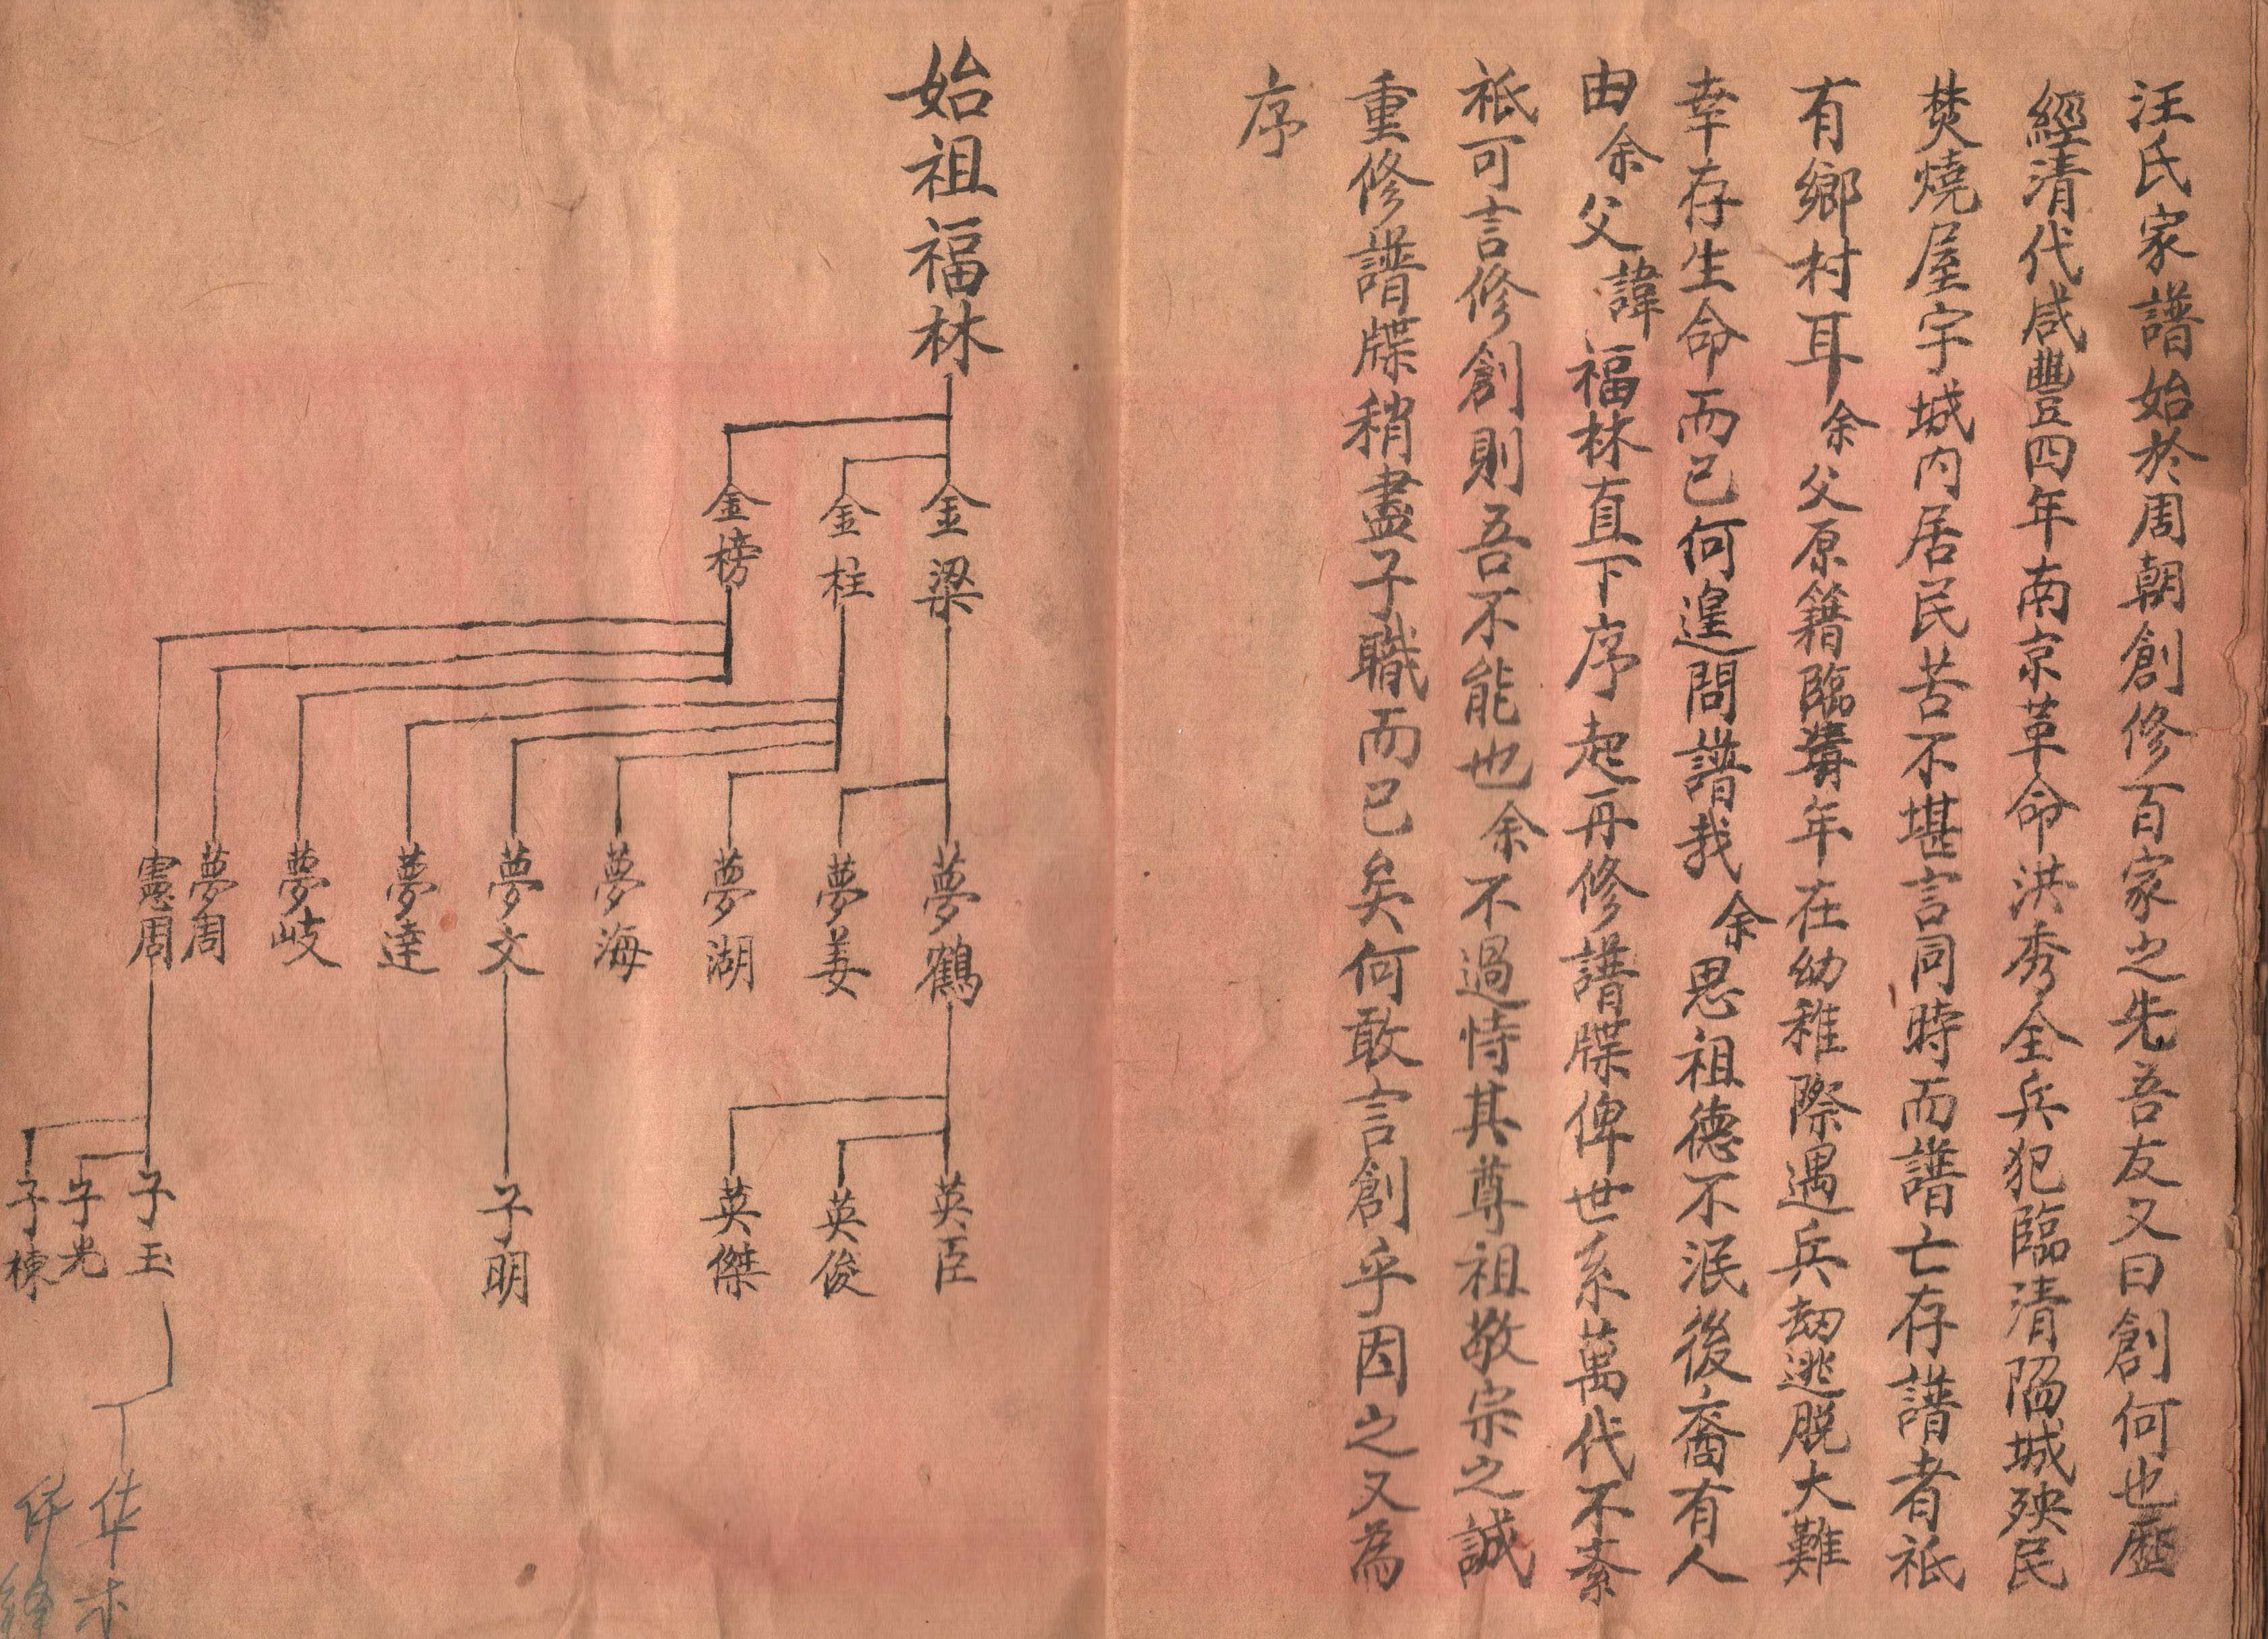 汪氏家譜始於周朝創修百家之先吾友又曰創何也歷
經清代咸豐四年南京革命洪秀全兵犯臨清陷城殃民
焚燒屋宇城內居民苦不堪言同時而譜亡存譜者祇
有鄉村耳余父原籍臨清年在幼稚際遇兵劫逃脱大難
幸存生命而已何遑問譜哉余思祖德不泯後裔有人
由余父諱福林直下序起再修譜牒俾世系萬代不紊
祇可言修創則吾不能也余不過恃其尊祖敬宗之誠
重修譜牒稍盡子職而已矣何敢言創乎因之又為
序
始祖福林
金梁
金柱
金榜
夢鶴
夢姜
夢湖
夢海
夢文
夢達
夢岐
夢周
憲周
英臣
英俊
英傑
子明
子玉
子光
子棟